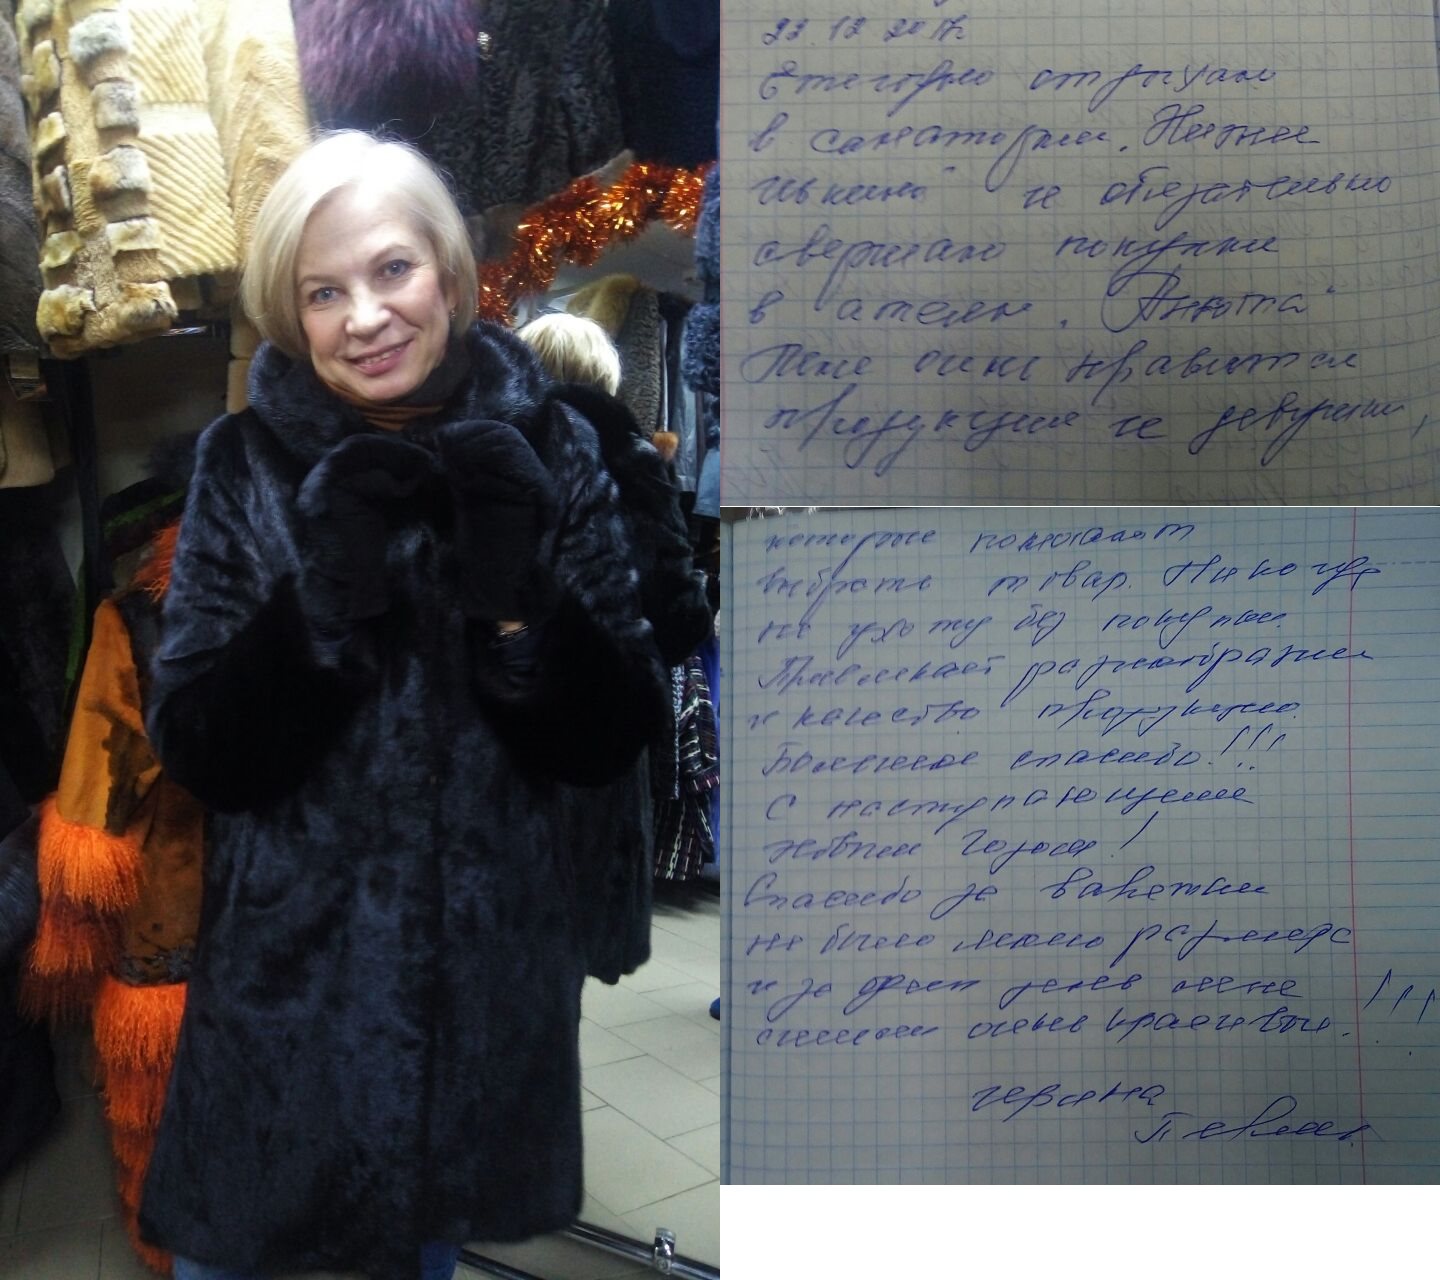 22.12.2017г.
Ежегодно отдыхаю
в санатории "Нижне
ивкино" и обязательно
совершаю покупки
в ателье "Анюта"
Мне очень нравится
продукция и девушки,
которые помогают
выбрать товар. Никогда
не ухожу без покупки.
Привлекает разнообразие
и качество продукции.
Большое спасибо!!!
С наступающим
Новым Годом!
Спасибо за варежки
не было моего размера
и за один день мне
сшили очень красивые.!!!